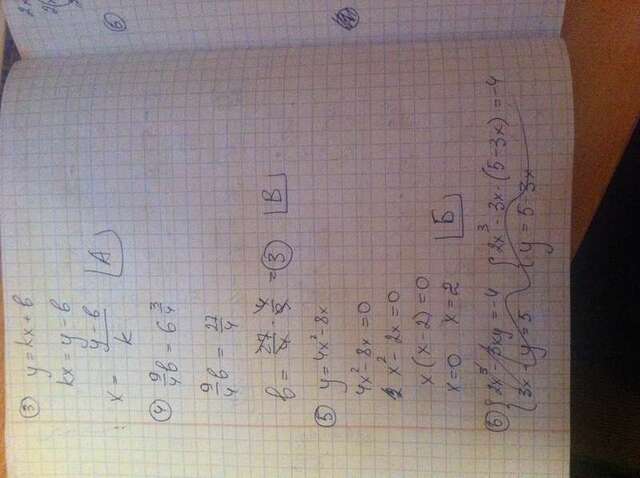 ③ y = kx + b
kx = y - b
x = (y - b)/k А
④ 9/4 b = 6 3/4
9/4 b = 27/4
b = 27/4 · 4/9 = 3 В
⑤ y = 4x² - 8x
4x² - 8x = 0
x² - 2x = 0
x(x - 2) = 0
x = 0 x = 2 Б
⑥ { 2x³ - 3xy = -4 { 2x³ - 3x · (5 - 3x) = -4
3x + y = 5 y = 5 - 3x
2x
⑥